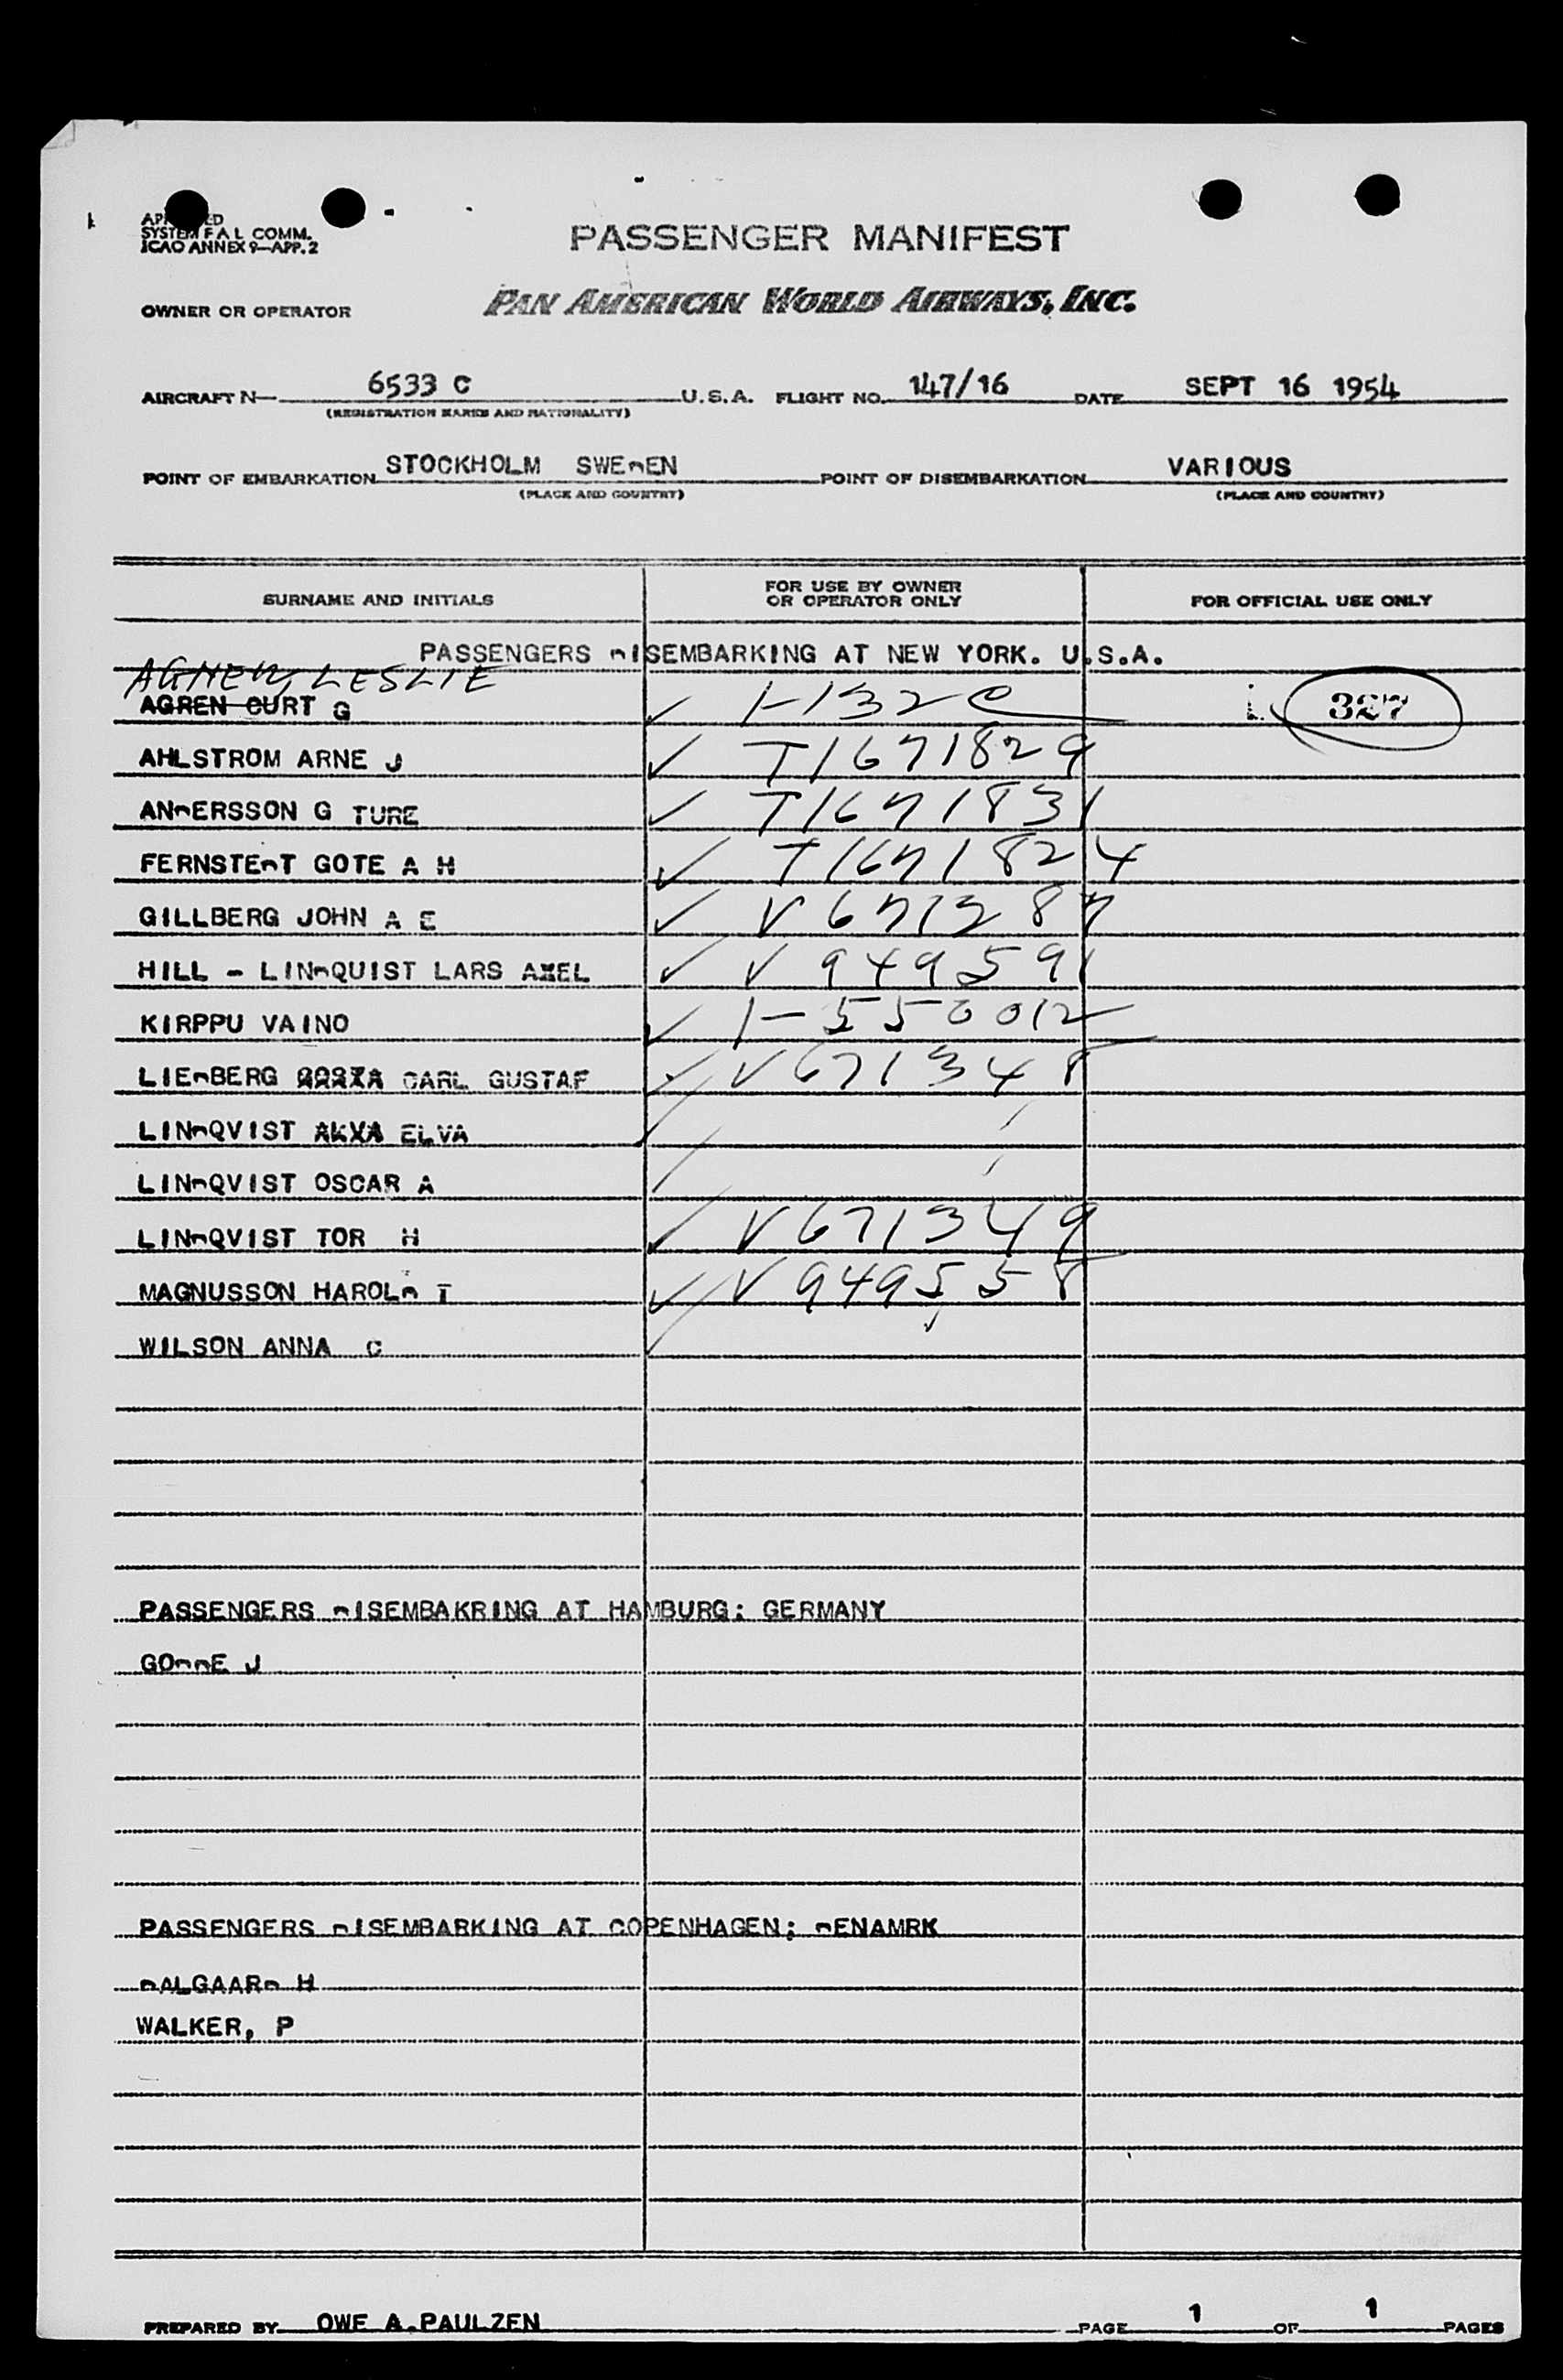 SYSTEM F A L COMM.
ICAO ANNEX 9—APP. 2
PASSENGER MANIFEST
OWNER OR OPERATOR PAN AMERICAN WORLD AIRWAYS, INC.
AIRCRAFT N— 6533 C U.S.A. FLIGHT NO. 147/16 DATE SEPT 16 1954
(REGISTRATION MARKS AND NATIONALITY)
POINT OF EMBARKATION STOCKHOLM SWEDEN POINT OF DISEMBARKATION VARIOUS
(PLACE AND COUNTRY) (PLACE AND COUNTRY)
SURNAME AND INITIALS FOR USE BY OWNER OR OPERATOR ONLY FOR OFFICIAL USE ONLY
PASSENGERS DISEMBARKING AT NEW YORK. U.S.A.
AGNEW, LESLIE
AGREN CURT G ✓ 1-132 C 327
AHLSTROM ARNE J ✓ T1671829
ANDERSSON G TURE ✓ T1671831
FERNSTEDT GOTE A H ✓ T1671824
GILLBERG JOHN A E ✓ V671387
HILL - LINDQUIST LARS AXEL ✓ V949591
KIRPPU VAINO ✓ 1-550012
LIEDBERG CARL GUSTAF ✓ V671348
LINDQVIST ELVA ✓
LINDQVIST OSCAR A ✓
LINDQVIST TOR H ✓ V671349
MAGNUSSON HAROLD T ✓ V949558
WILSON ANNA C ✓
PASSENGERS DISEMBAKRING AT HAMBURG: GERMANY
GODDE J
PASSENGERS DISEMBARKING AT COPENHAGEN; DENAMRK
DALGAARD H
WALKER, P
PREPARED BY OWE A.PAULZEN PAGE 1 OF 1 PAGES